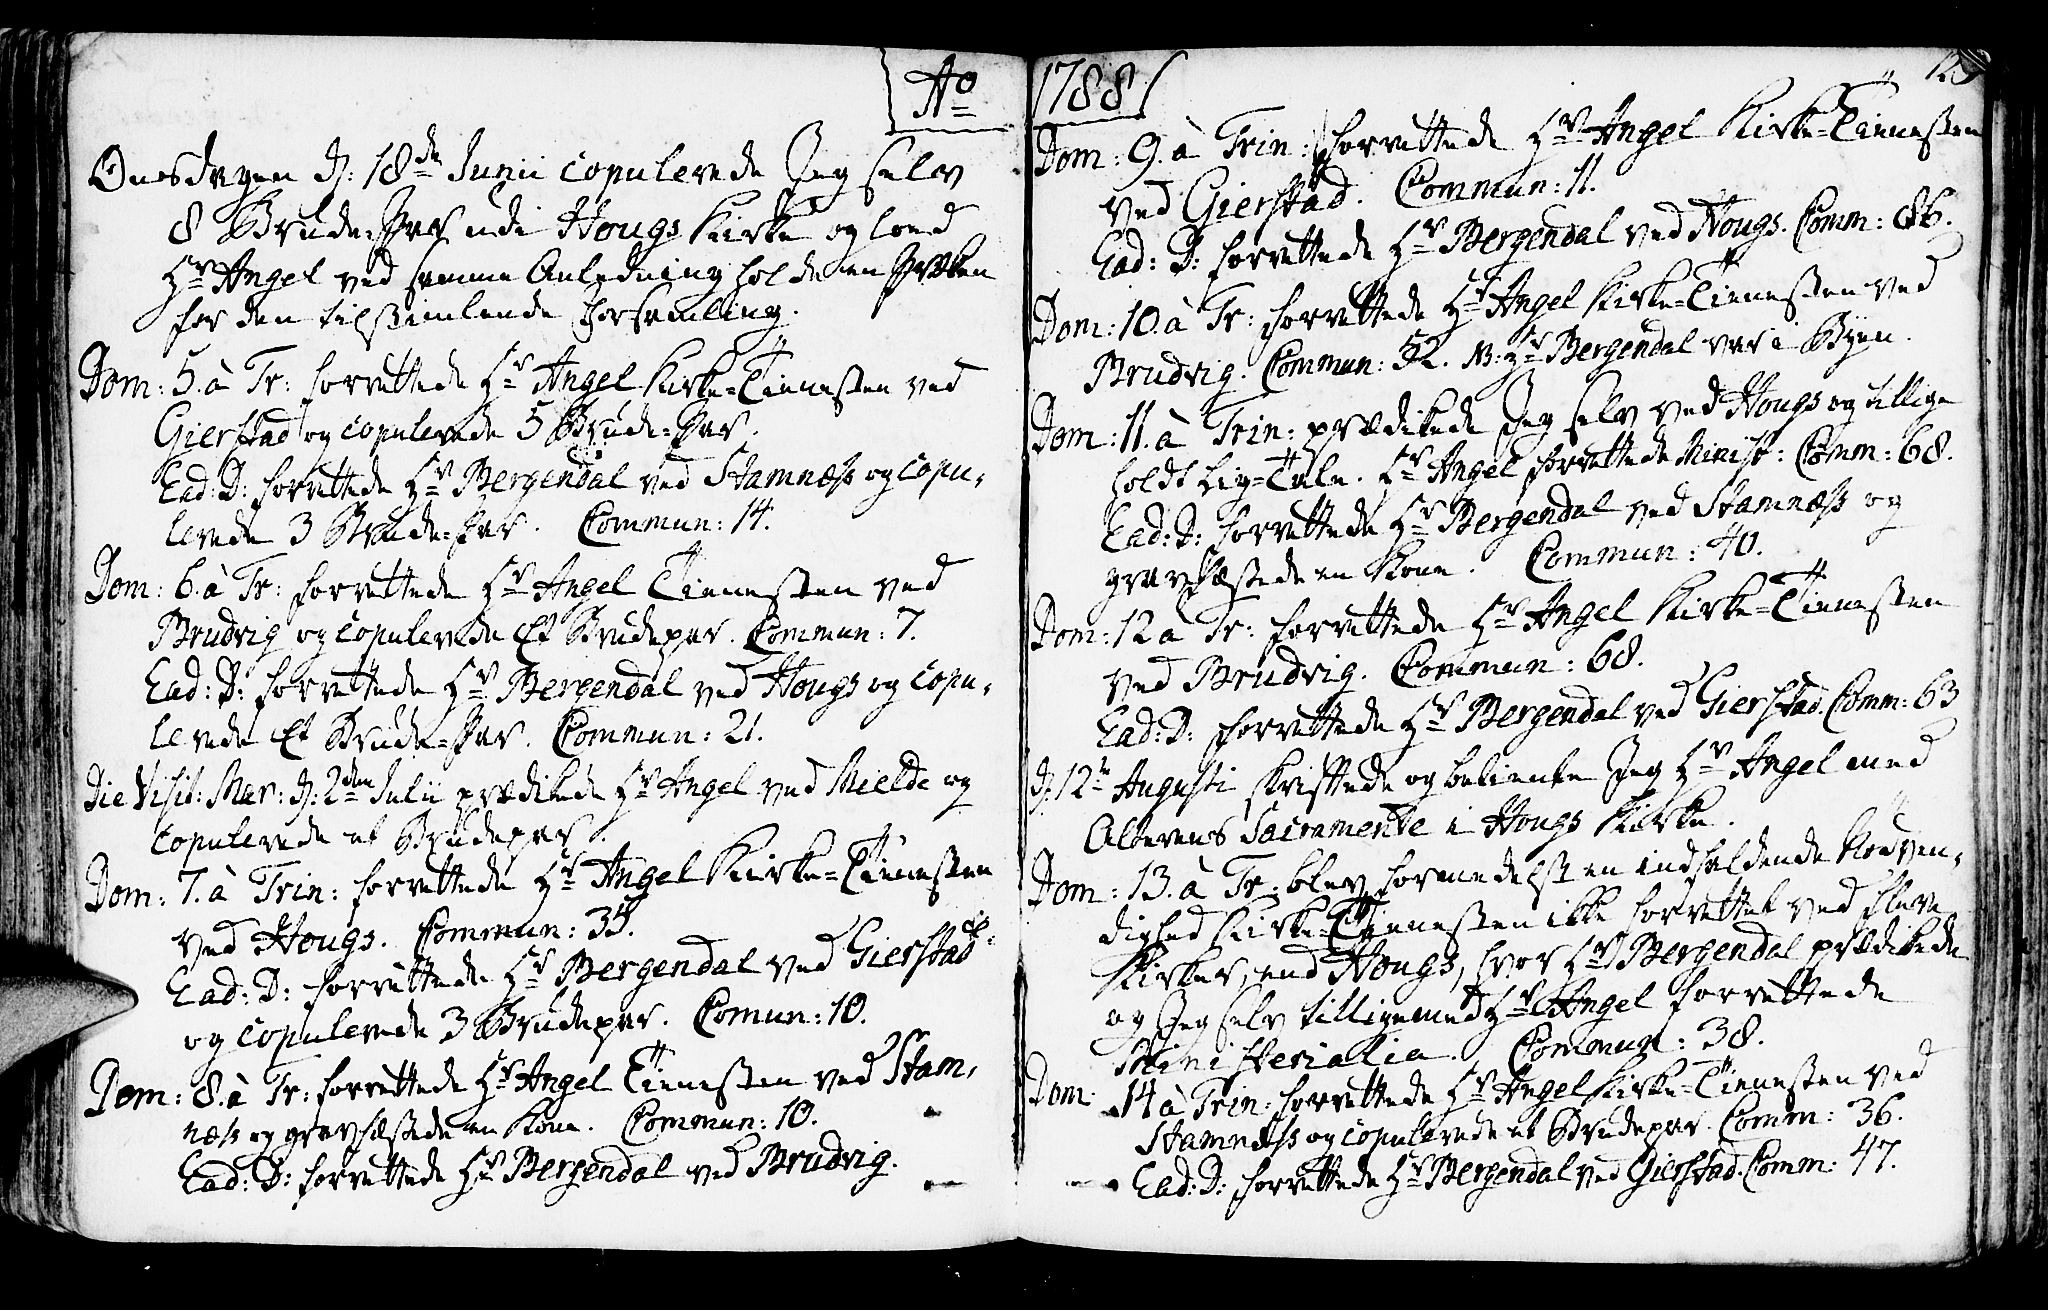 Ao 1788
Onsdagen d: 18de Junii copulerede Jeg selv
8 Brude-Par udi Hougs Kirke og loed
Hr Angel ved samme Anledning holde en Præken
for den tilstimlende Forsamling.
Dom: 5. à Tr: forrettede Hr Angel Kirke-Tienesten ved
Gierstad og copulerede 5 Brude-Par.
Ead: D: forrettede Hr Bergendal ved Stamnæss og copu-
lerede 3 Brude-Par. Commun: 14.
Dom: 6. à Tr: forrettede Hr Angel Tienesten ved
Brudvig og copulerede Et Brudepar. Commun: 7.
Ead: D: forrettede Hr Bergendal ved Hougs og copu-
lerede Et Brude-Par. Commun: 21.
Die Visit: Mar: d: 2den Julii prædikede Hr Angel ved Mielde og
copulerede et Brudepar.
Dom: 7. à Trin: forrettede Hr Angel Kirke-Tienesten
ved Hougs. Commun: 35.
Ead: D: forrettede Hr Bergendal ved Gierstad
og copulerede 3 Brudepar. Comun: 10.
Dom: 8. à Tr: forrettede Hr Angel Tienesten ved Stam-
næss og gravfæstede en Kone. Commun: 10.
Ead: D: forrettede Hr Bergendal ved Brudvig.
Dom: 9. à Trin: forrettede Hr Angel Kirke-Tienesten
ved Gierstad. Commun: 11.
Ead: D: forrettede Hr Bergendal ved Hougs. Comm: 86.
Dom: 10. à Tr: forrettede Hr Angel Kirke-Tienesten ved
Brudvig. Commun: 52. NB: Hr Bergendal var i Byen.
Dom: 11. à Trin: prædikede Jeg selv ved Hougs og tillige
holdt Lig-Tale. Hr Angel forrettede Minist: Comm: 68.
Ead: D: forrettede Hr Bergendal ved Stamnæss og
gravfæstede en Kone. Commun: 40.
Dom: 12 à Tr: forrettede Hr Angel Kirke-Tienesten
ved Brudvig. Commun: 68.
Ead: D: forrettede Hr Bergendal ved Gierstad. Comm: 63
d: 12te Augusti skriftede og betiente Jeg Hr Angel med
Alterens Sacramente i Hougs Kirke.
Dom: 13. à Tr: blev formedelst en indfaldende Nødven-
dighed Kirke-Tienesten ikke forrettet ved flere
Kirker, end Hougs, hvor Hr Bergendal prædikede
og Jeg selv tilligemed Hr Angel forrettede
Ministerialia. Commun: 38.
Dom: 14 à Trin: forrettede Hr Angel Kirke-Tienesten ved
Stamnæss og copulerede et Brudepar. Comm: 36.
Ead: D: forrettede Hr Bergendal ved Gierstad. Comm: 47.